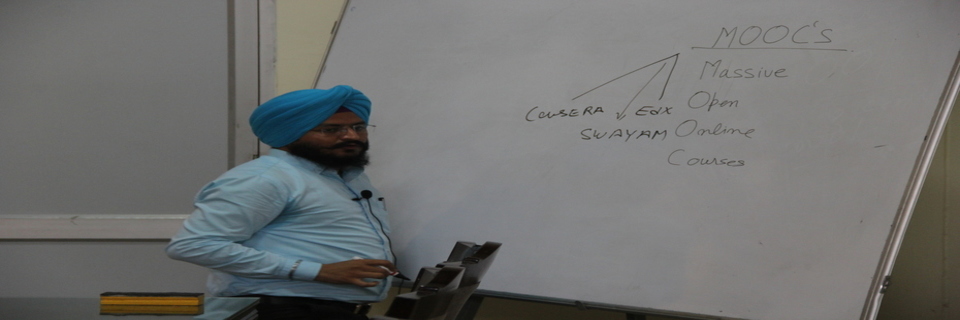 MOOC'S
Massive
Open
Online
Courses
CouseRA
Edx
SWAYAM